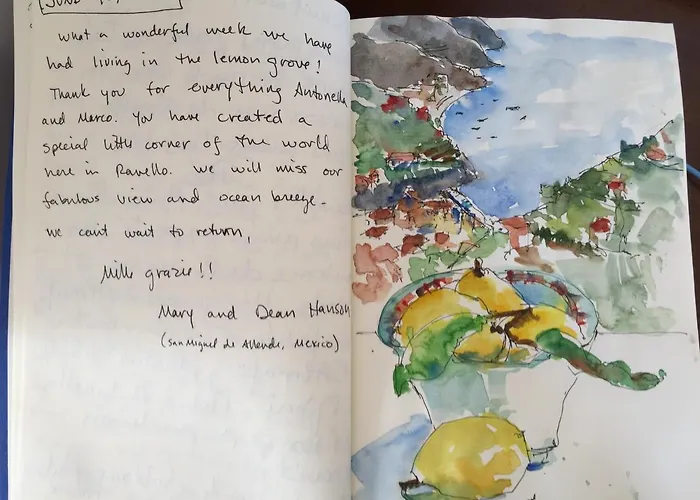 what a wonderful week we have
had living in the lemon grove!
Thank you for everything Antonella
and Marco. You have created a
special little corner of the world
here in Ravello. We will miss our
fabulous view and ocean breeze.
We can't wait to return,
Mille grazie!!
Mary and Dean Hanson
(San Miguel de Allende, Mexico)